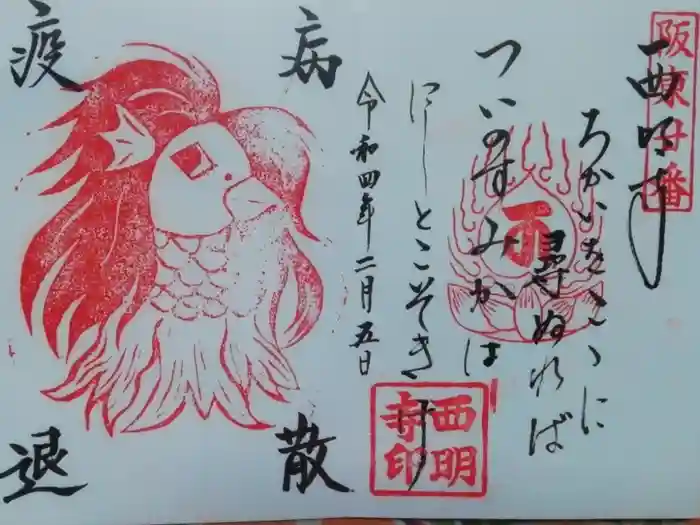 阪東廿番
西明寺
ちかいをこゝに
尋ぬれば
ついのすみかは
にしとこそきけ
西明
寺印
令和四年二月五日
病
散
疫
退